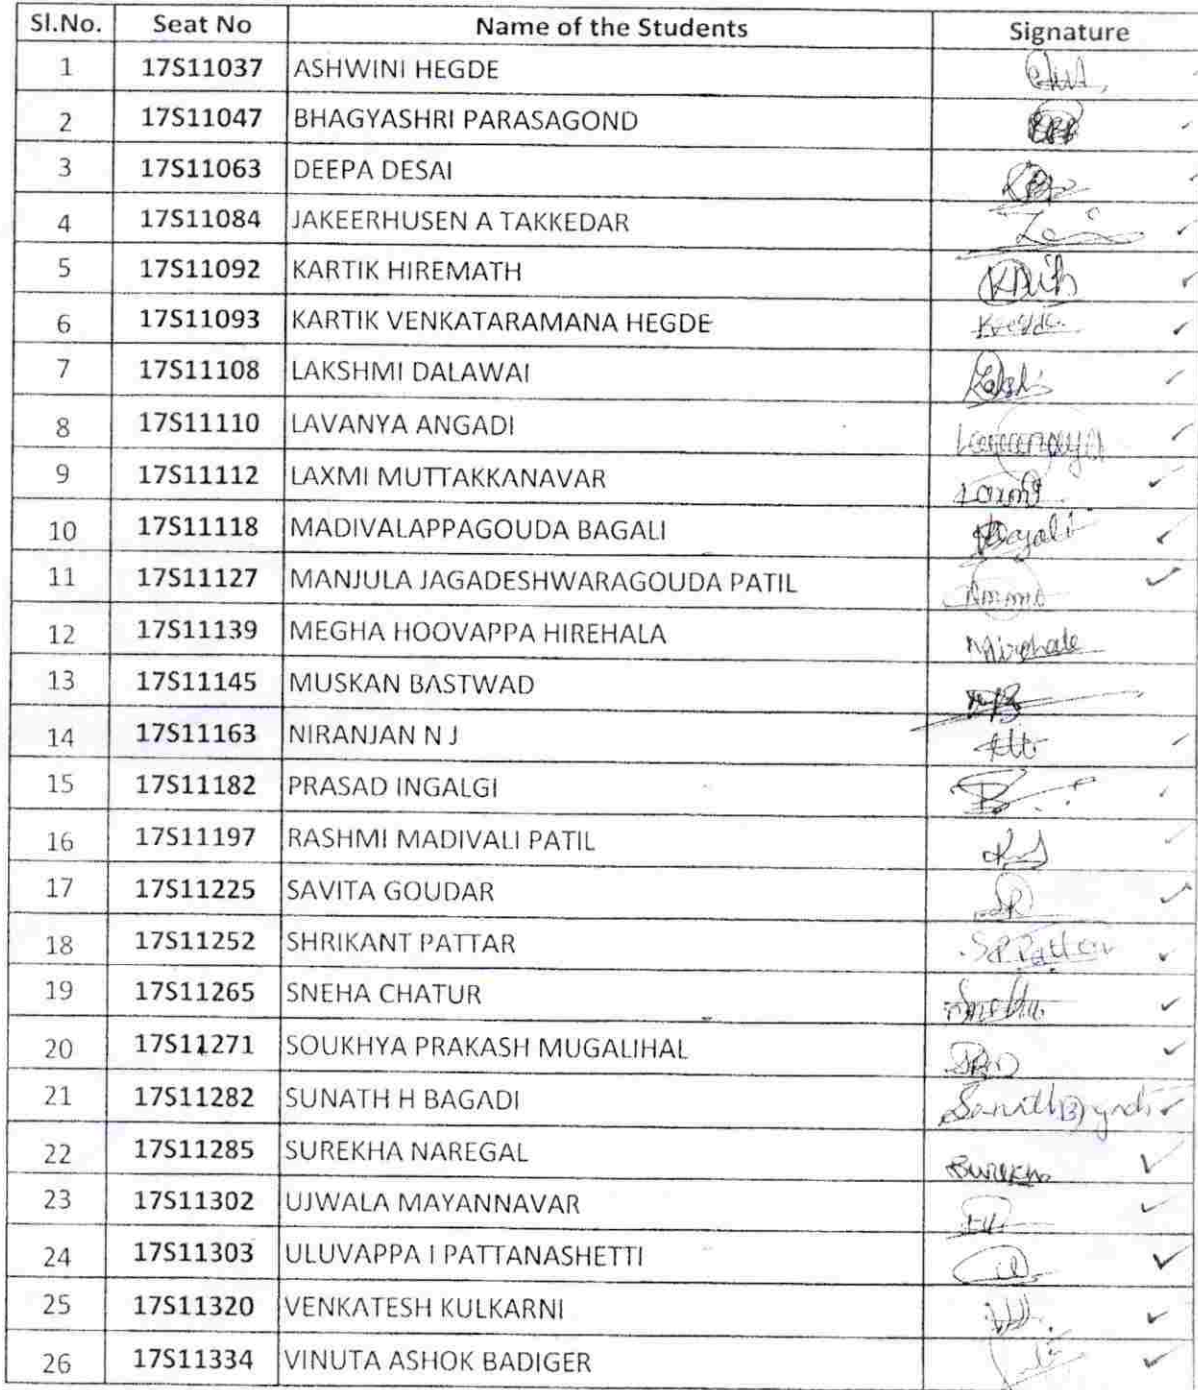 Sl.No. Seat No Name of the Students Signature
1 17S11037 ASHWINI HEGDE
2 17S11047 BHAGYASHRI PARASAGOND
3 17S11063 DEEPA DESAI
4 17S11084 JAKEERHUSEN A TAKKEDAR
5 17S11092 KARTIK HIREMATH
6 17S11093 KARTIK VENKATARAMANA HEGDE
7 17S11108 LAKSHMI DALAWAI
8 17S11110 LAVANYA ANGADI
9 17S11112 LAXMI MUTTAKKANAVAR
10 17S11118 MADIVALAPPAGOUDA BAGALI Bagali
11 17S11127 MANJULA JAGADESHWARAGOUDA PATIL
12 17S11139 MEGHA HOOVAPPA HIREHALA
13 17S11145 MUSKAN BASTWAD
14 17S11163 NIRANJAN N J
15 17S11182 PRASAD INGALGI
16 17S11197 RASHMI MADIVALI PATIL
17 17S11225 SAVITA GOUDAR
18 17S11252 SHRIKANT PATTAR S.P.Pattar
19 17S11265 SNEHA CHATUR Sneha
20 17S11271 SOUKHYA PRAKASH MUGALIHAL
21 17S11282 SUNATH H BAGADI
22 17S11285 SUREKHA NAREGAL Surekha
23 17S11302 UJWALA MAYANNAVAR
24 17S11303 ULUVAPPA I PATTANASHETTI
25 17S11320 VENKATESH KULKARNI
26 17S11334 VINUTA ASHOK BADIGER